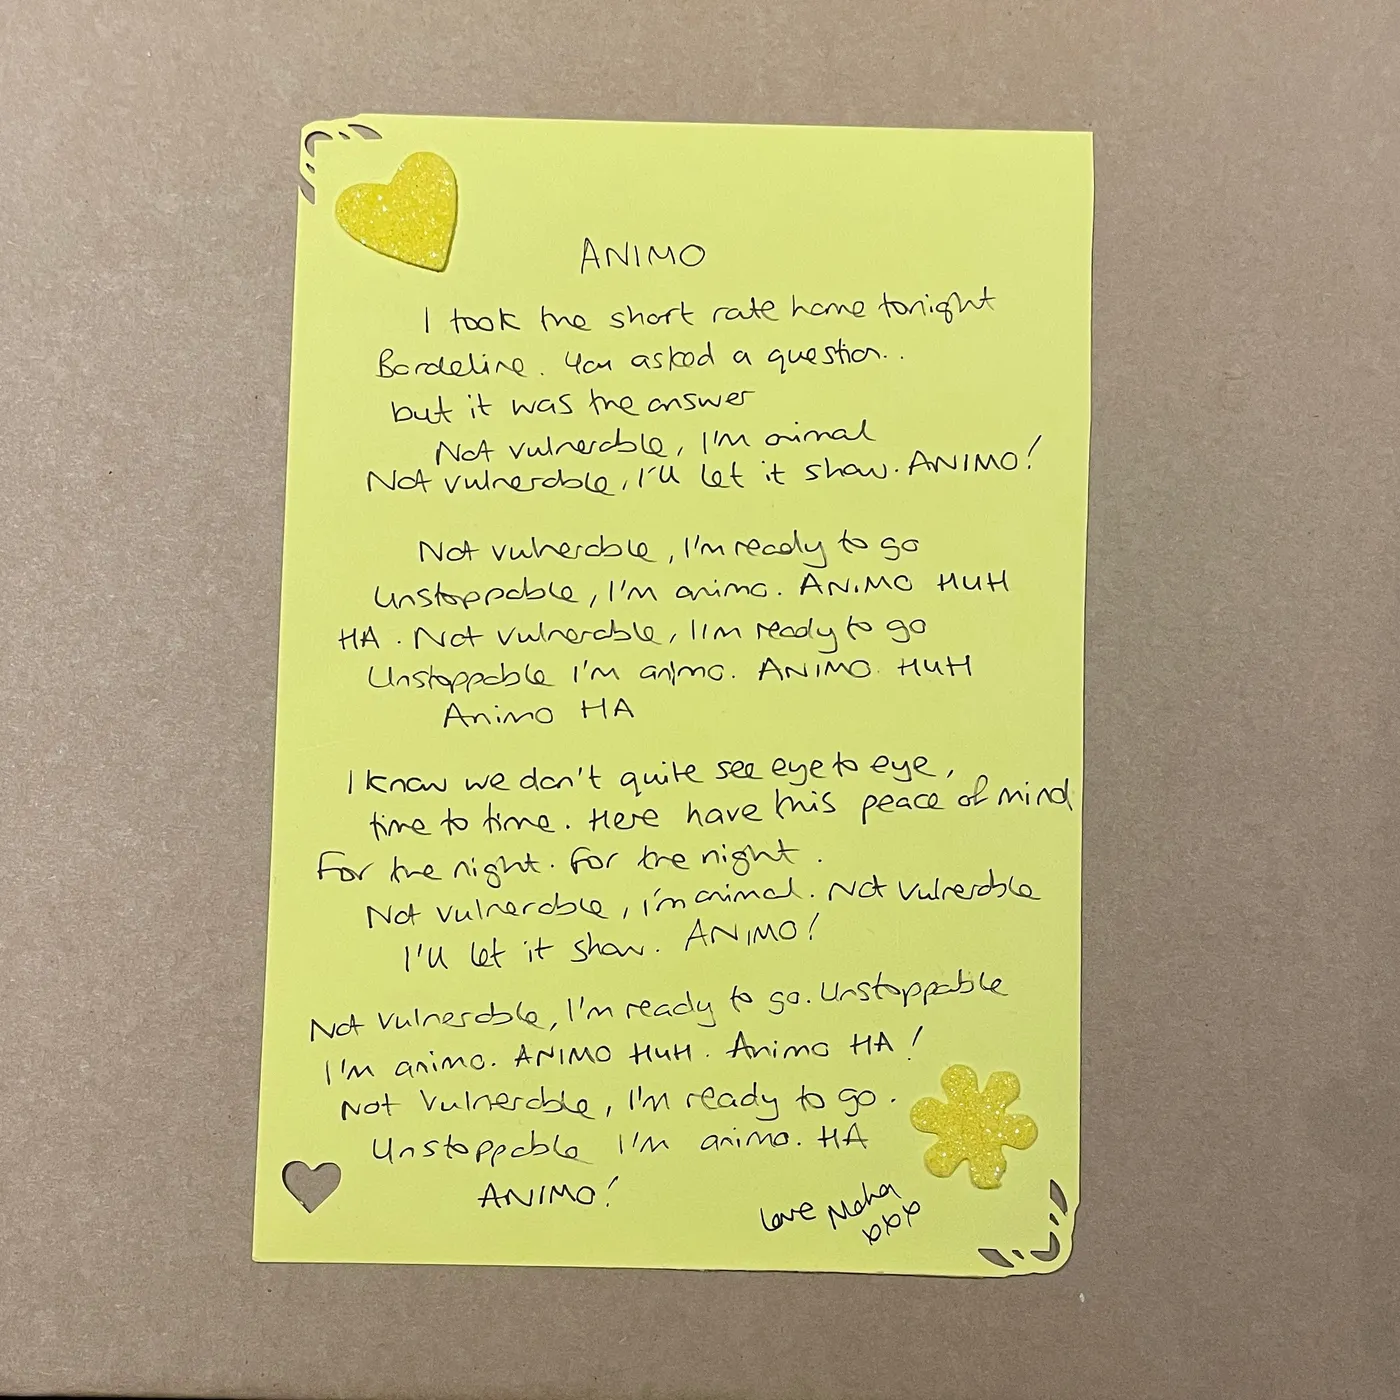 ANIMO
I took the short rate home tonight
Bordeline. You asked a question..
but it was the answer
Not vulnerable, I'm animal
Not vulnerable, I'll let it show. ANIMO!
Not vulnerable, I'm ready to go
Unstoppable, I'm animo. ANIMO HUH
HA. Not vulnerable, I'm ready to go
Unstoppable I'm animo. ANIMO HUH
Animo HA
I know we don't quite see eye to eye,
time to time. Here have this peace of mind
For the night. For the night.
Not vulnerable, i'm animal. Not vulnerable
I'll let it show. ANIMO!
Not vulnerable, I'm ready to go. Unstoppable
I'm animo. ANIMO HUH. Animo HA!
Not vulnerable, I'm ready to go.
Unstoppable I'm animo. HA
ANIMO!
Love
xxx